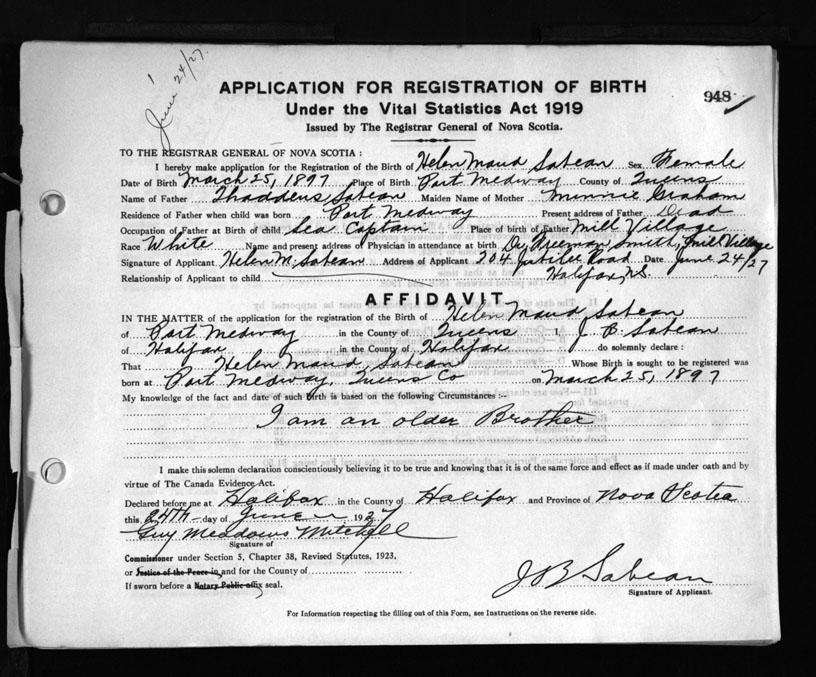 June 24/27.
APPLICATION FOR REGISTRATION OF BIRTH
948
Under the Vital Statistics Act 1919
Issued by The Registrar General of Nova Scotia.
TO THE REGISTRAR GENERAL OF NOVA SCOTIA:
I hereby make application for the Registration of the Birth of Helen Maud Sabean Sex Female
Date of Birth March 25, 1897 Place of Birth Port Medway County of Queens
Name of Father Thaddeus Sabean Maiden Name of Mother Minnie Graham
Residence of Father when child was born Port Medway Present address of Father Dead
Occupation of Father at Birth of child Sea Captain Place of birth of Father Mill Village
Race White Name and present address of Physician in attendance at birth Dr. Freeman Smith, Mill Village
Signature of Applicant Helen M. Sabean Address of Applicant 204 Jubilee Road Date June 24/27
Relationship of Applicant to child Halifax, N.S.
AFFIDAVIT
IN THE MATTER of the application for the registration of the Birth of Helen Maud Sabean
of Port Medway in the County of Queens I, J. B. Sabean
of Halifax in the County of Halifax do solemnly declare:
That Helen Maud Sabean Whose Birth is sought to be registered was
born at Port Medway, Queens Co on March 25, 1897
My knowledge of the fact and date of such Birth is based on the following Circumstances:-
I am an older Brother
I make this solemn declaration conscientiously believing it to be true and knowing that it is of the same force and effect as if made under oath and by
virtue of The Canada Evidence Act.
Declared before me at Halifax in the County of Halifax and Province of Nova Scotia
this 24th day of June 1927
Guy Meadows Mitchell
Signature of
Commissioner under Section 5, Chapter 38, Revised Statutes, 1923,
or Justice of the Peace in and for the County of
If sworn before a Notary Public affix seal.
J B Sabean
Signature of Applicant.
For Information respecting the filling out of this Form, see Instructions on the reverse side.